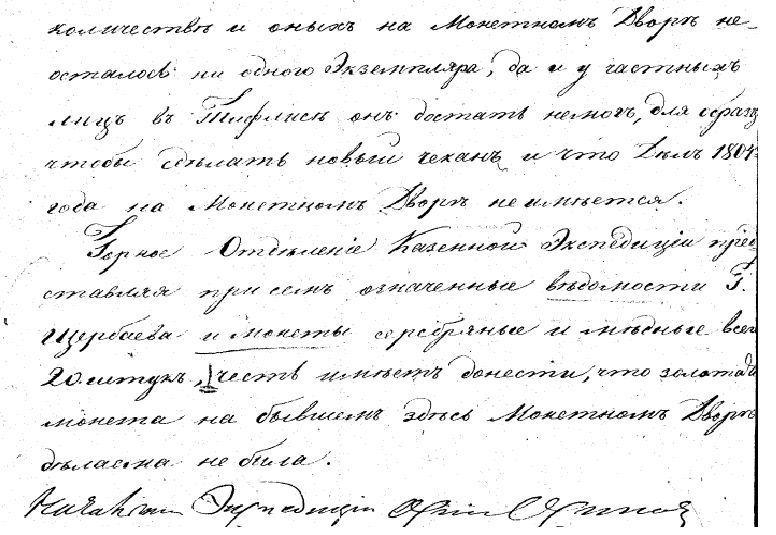 количествѣ и оныхъ на Монетномъ Дворѣ не-
осталось ни одного Экземпляра, да и у частныхъ
лицъ въ Тифлисѣ онъ достать немогъ, для образц
чтобы сдѣлать новый чеканъ и что Дѣлъ 1804
года на Монетномъ Дворѣ не имѣется.
Горное Отдѣленіе Казенной Экспедиціи пред
ставляя при семъ означенные вѣдомости Г.
Щербаева и монеты серебряные и мѣдные всего
20. штукъ, честь имѣетъ донести, что золотая
монета на бывшемъ здѣсь Монетномъ Дворѣ
дѣлаема не была.
Начальникъ Экспедиціи